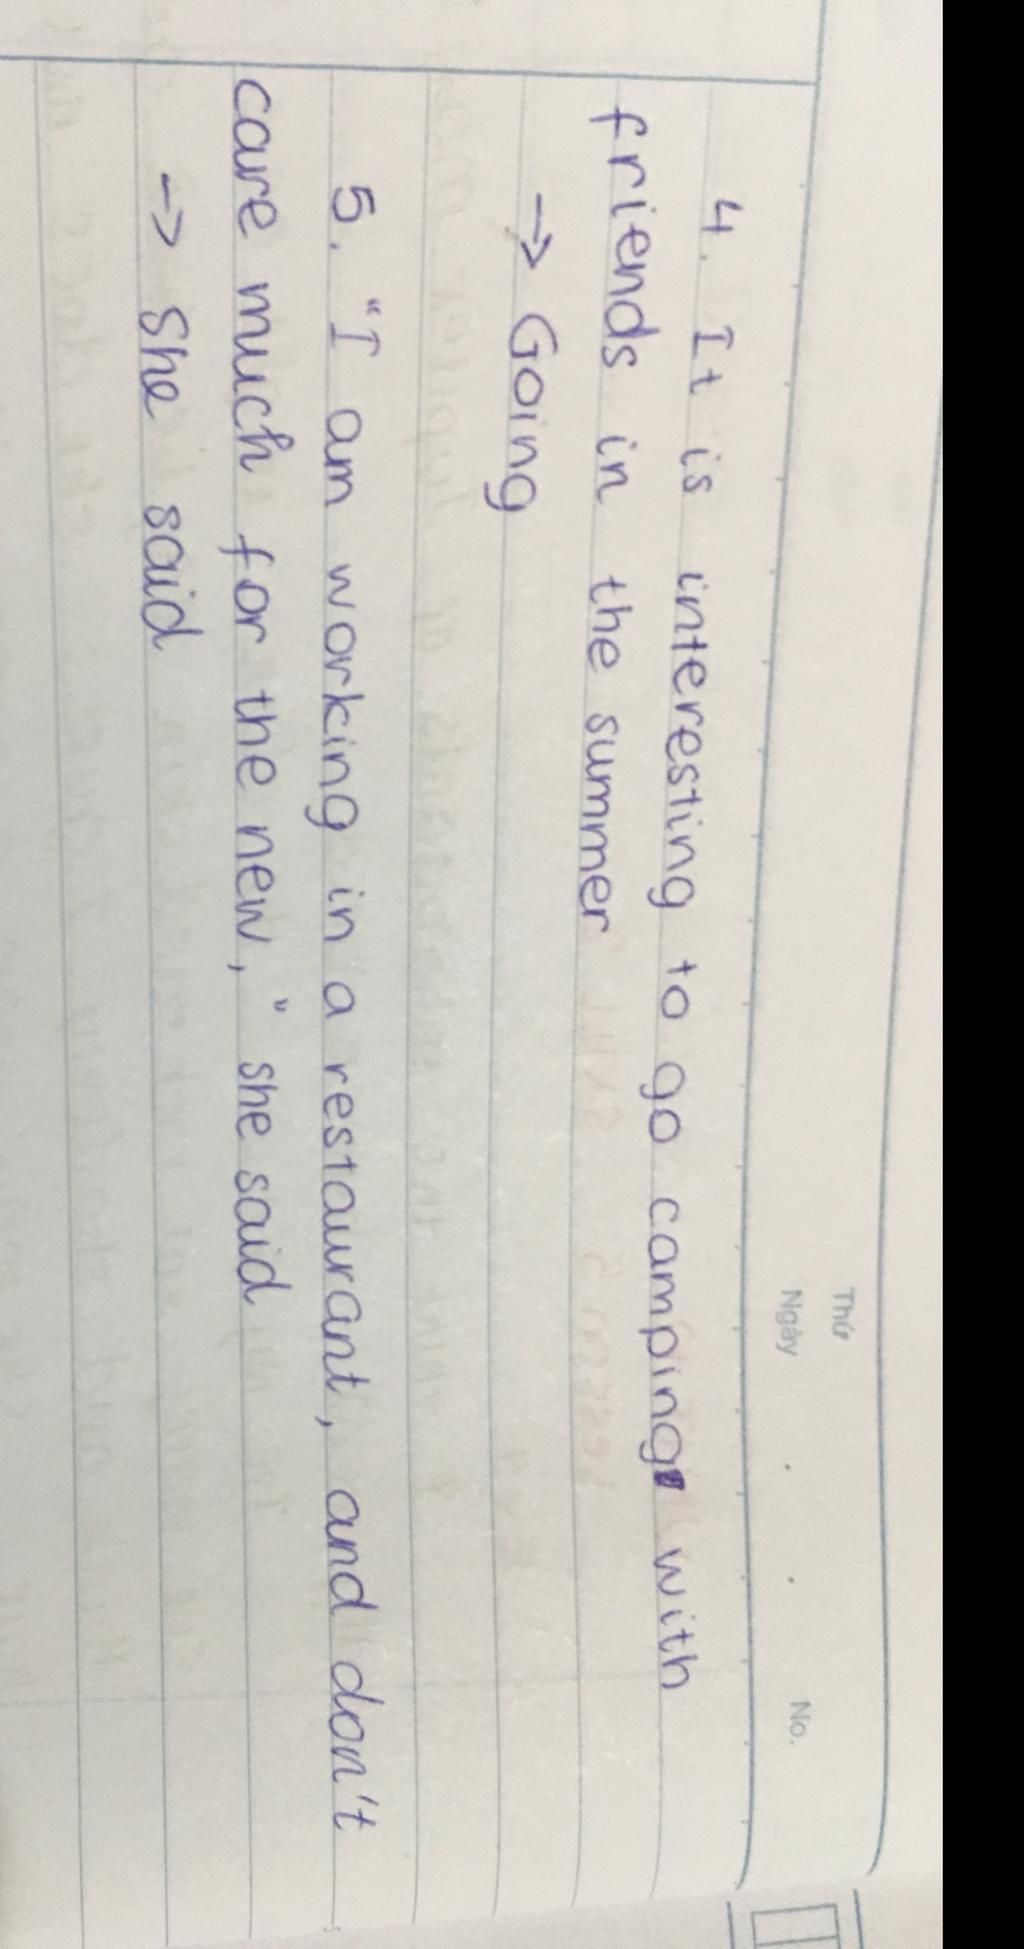 Thứ
Ngày
No.
4. It is interesting to go camping with
friends in the summer
→ Going
5. "I am working in a restaurant, and don't
care much for the new," she said
→ She said